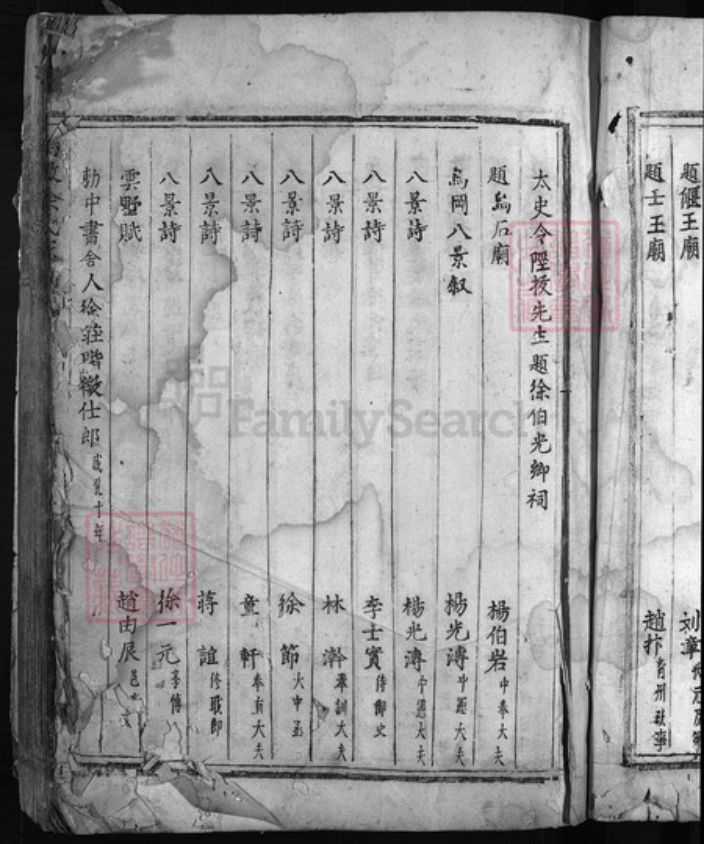 題偃王廟 刘章
題王王廟 趙抃 青州
太史令陞掞先生題徐伯光鄉祠
題烏石廟 楊伯岩 中奉大夫
烏岡八景叙 楊光溥 中憲大夫
八景詩 楊光溥 中憲大夫
八景詩 李士實 侍御史
八景詩 林瀚 奉訓大夫
八景詩 徐節 大中丞
八景詩 童軒 奉直大夫
八景詩 蔣誼 修職郎
八景詩 徐一元
雲墅賦 趙由辰
勅中書舍人徐莊階徵仕郎 成化十年
FamilySearch